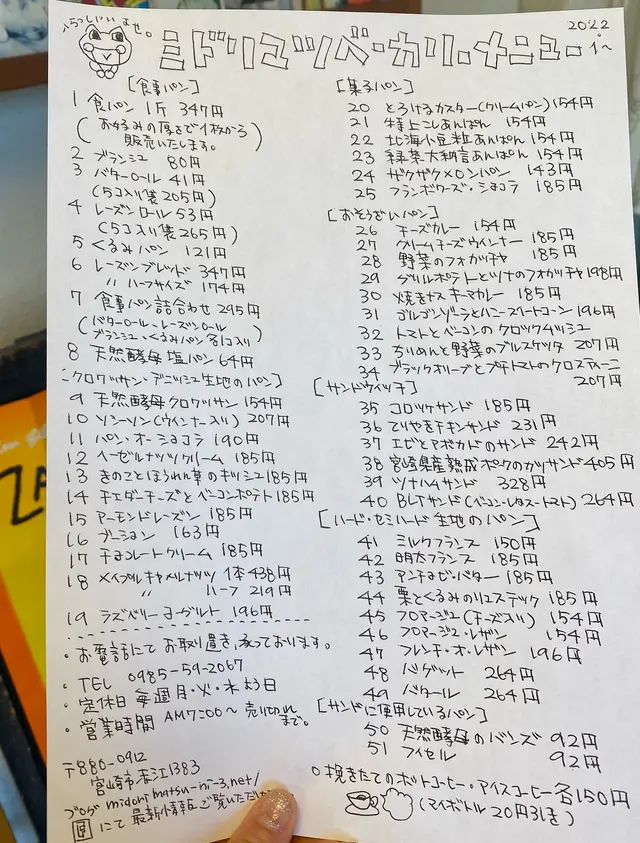 いらっしゃいませ。
ミドリマツベーカリーメニュー
2022.
1~
[食事パン]
1 食パン 1斤 347円
(お好みの厚さで1枚から
販売いたします。)
2 ブランジュ 80円
3 バターロール 41円
(5コ入り袋205円)
4 レーズンロール 53円
(5コ入り袋265円)
5 くるみパン 121円
6 レーズンブレッド 347円
〃 ハーフサイズ 174円
7 食事パン詰合わせ 295円
(バターロール・レーズンロール
ブランジュ・くるみパン各1コ入り)
8 天然酵母 塩パン 64円
[クロワッサン・デニッシュ生地のパン]
9 天然酵母クロワッサン 154円
10 ソンーソン(ウインナー入り) 207円
11 パン・オ・ショコラ 190円
12 ヘーゼルナッツクリーム 185円
13 きのことほうれん草のキッシュ 185円
14 チェダーチーズとベーコンポテト 185円
15 アーモンドレーズン 185円
16 163円
17 チョコレートクリーム 185円
18 メイプルキャラメルナッツ 1本438円
〃 ハーフ 219円
19 ラズベリーヨーグルト 196円
・お電話にてお取り置き、承っております。
・TEL 0985-59-2067
・定休日 毎週月・火・木曜日
・営業時間 AM7:00~売り切れ
まで。
〒880-0912
宮崎市赤江1383
ブログ midori matsu-ni-3.net/
にて最新情報ご覧いただけ
[菓子パン]
20 とろけるカスター(クリームパン) 154円
21 特上こしあんぱん 154円
22 北海小豆粒あんぱん 154円
23 緑茶大納言あんぱん 154円
24 ザクザクメロンパン 143円
25 フランボワーズ・ショコラ 185円
[おそうざいパン]
26 チーズカレー 154円
27 クリームチーズウインナー 185円
28 野菜のフォカッチャ 185円
29 グリルポテトとツナのフォカッチャ 198円
30 焼きナスキーマカレー 185円
31 ゴルゴンゾーラとハニースイートコーン 196円
32 トマトとベーコンのクロックムッシュ
33 ちりめんと野菜のブルスケッタ 207円
34 ブラックオリーブとプチトマトのクロスティーニ
207円
[サンドウイッチ]
35 コロッケサンド 185円
36 てりやきチキンサンド 231円
37 エビとアボカドのサンド 242円
38 宮崎県産熟成ポークのカツサンド 405円
39 ツナハムサンド 328円
40 BLTサンド(ベーコン・レタス・トマト) 264円
[ハード・セミハード生地のパン]
41 ミルクフランス 150円
42 明太フランス 185円
43 アンチョビ・バター 185円
44 栗とくるみのリュスティック 185円
45 フロマージュ(チーズ入り) 154円
46 フロマージュ・レザン 154円
47 フレンチ・オ・レザン 196円
48 バゲット 264円
49 バタール 264円
[サンドに使用しているパン]
50 天然酵母のバンズ 92円
51 フィセル 92円
○挽きたてのホットコーヒー・アイスコーヒー各150円
(マイボトル20円引き)